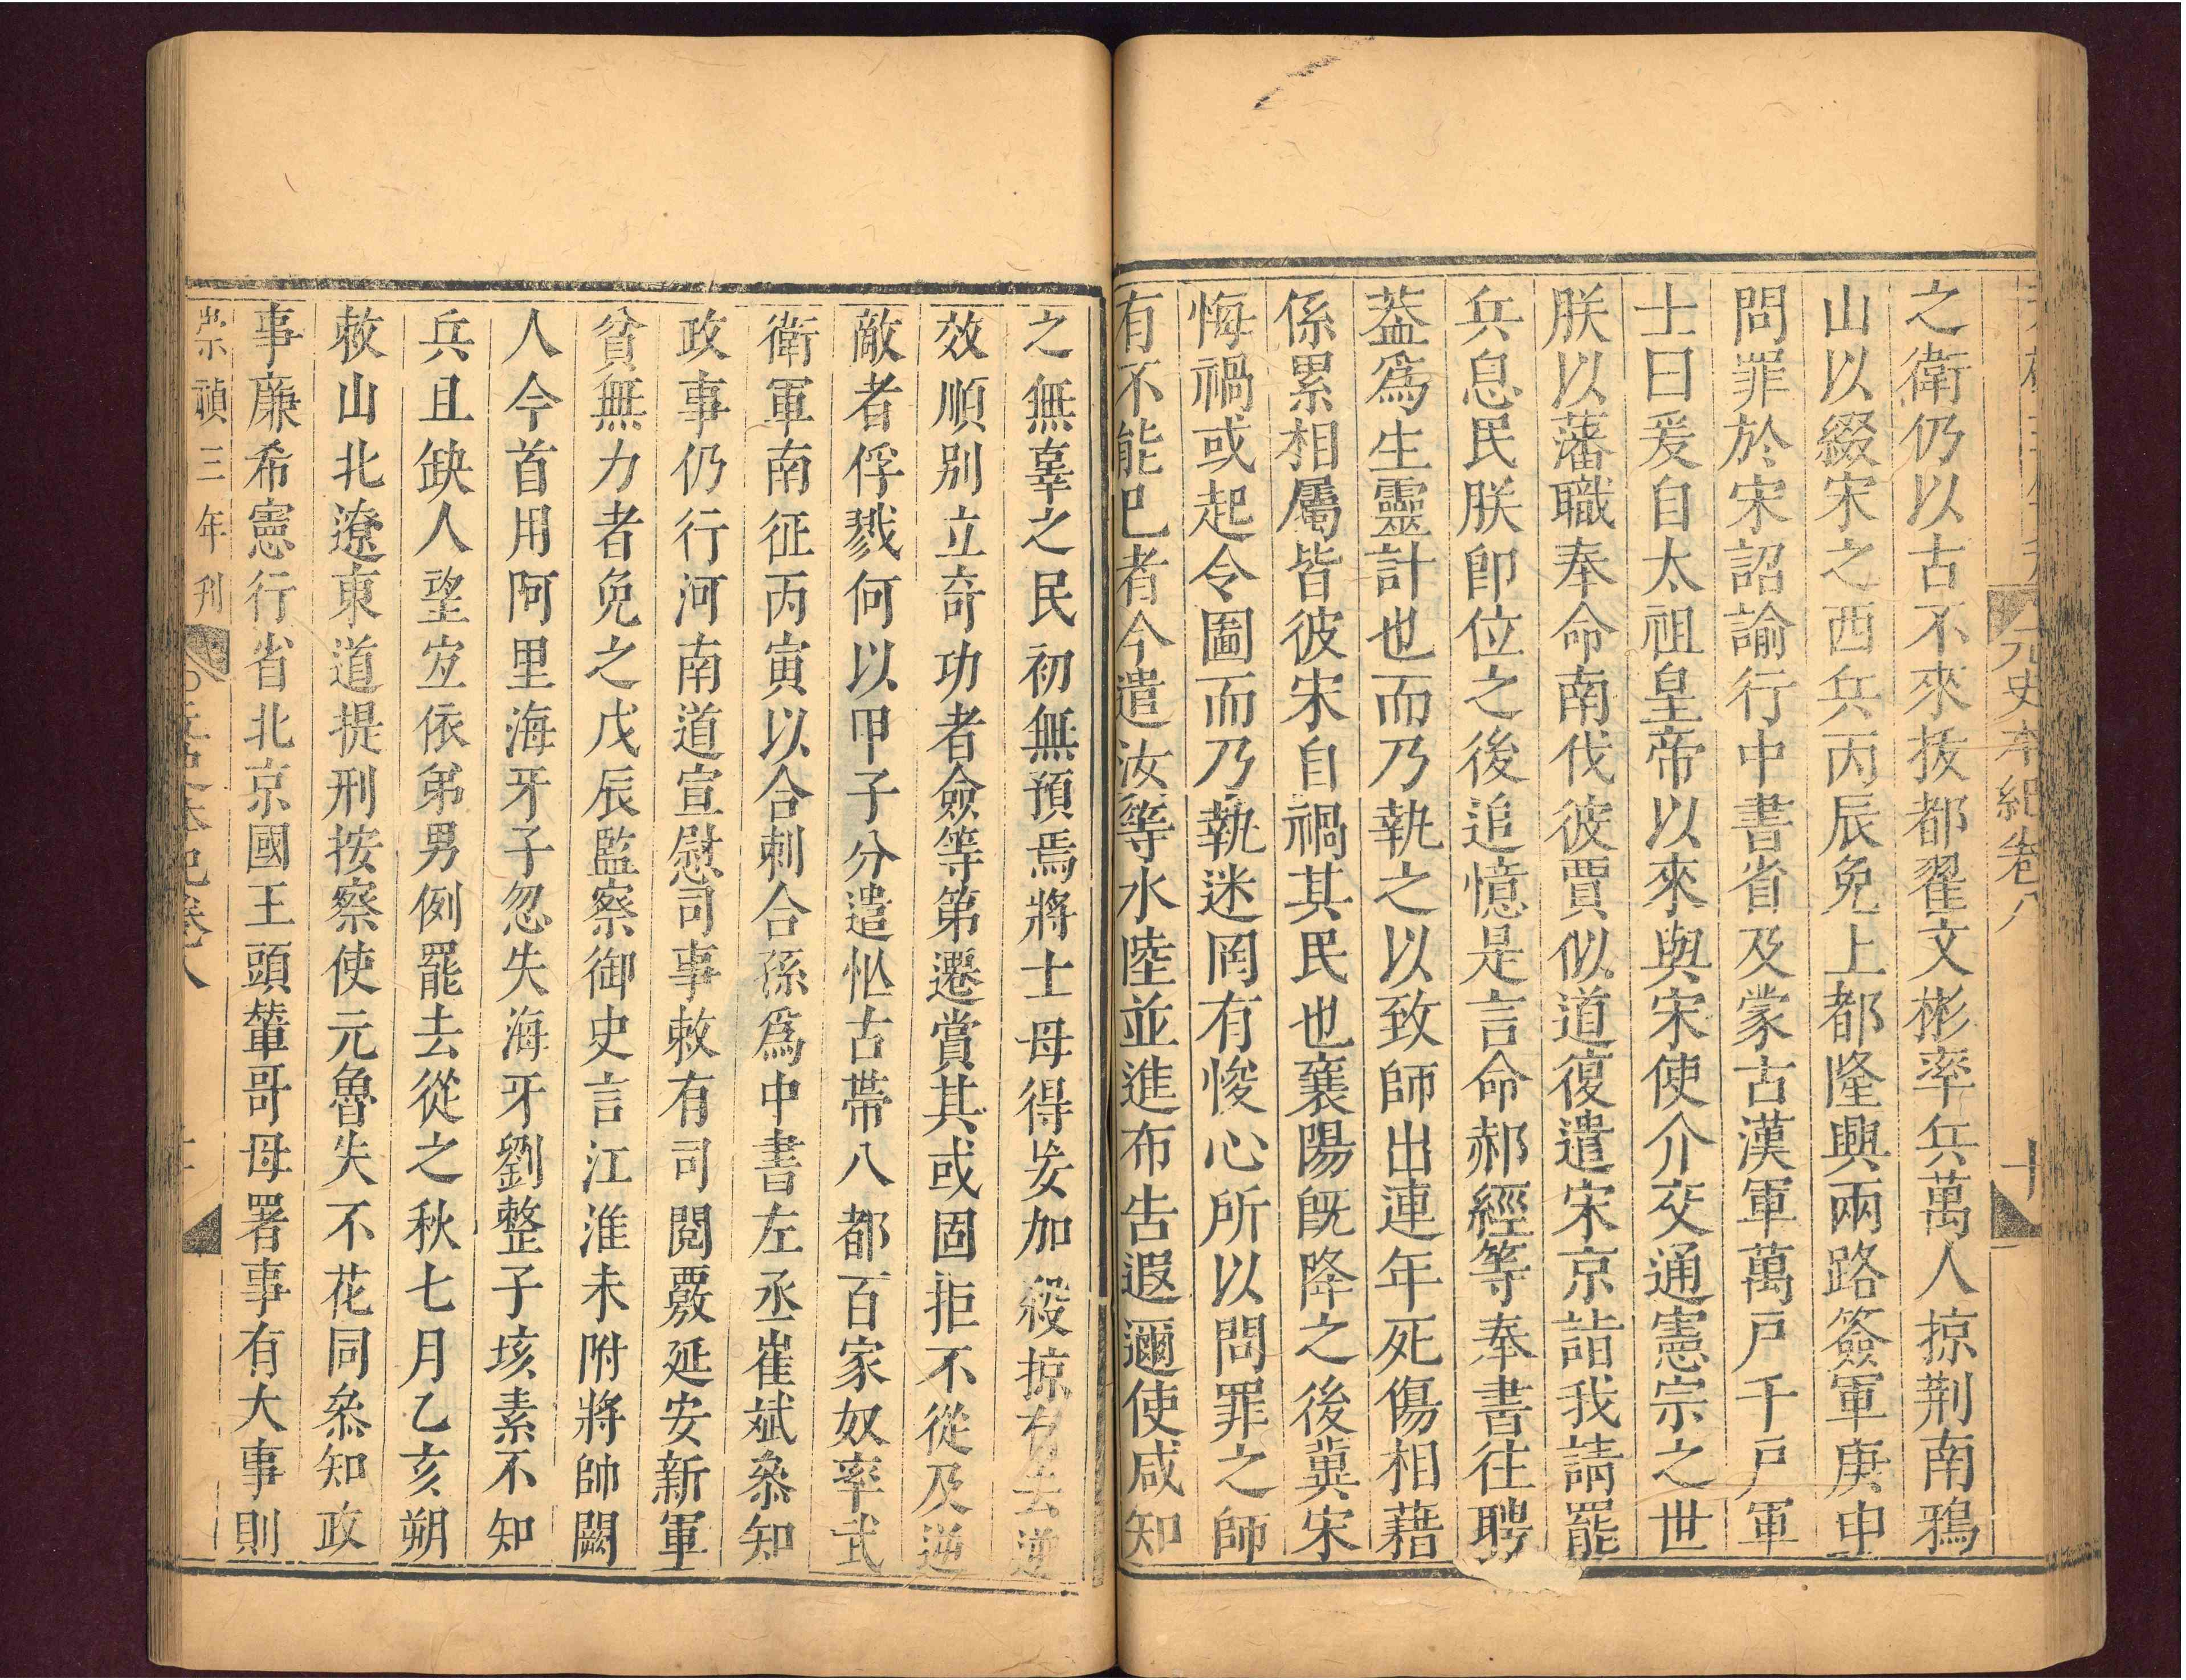 元史本紀卷八
十
之衛仍以古不來拔都翟文彬率兵萬人掠荆南鴉
山以綴宋之西兵丙辰免上都隆興兩路簽軍庚申
問罪於宋詔諭行中書省及蒙古漢軍萬戸千戸軍
士曰爰自太祖皇帝以來與宋使介交通憲宗之世
朕以藩職奉命南伐彼賈似道復遣宋京詣我請罷
兵息民朕卽位之後追憶是言命郝經等奉書往聘
葢爲生靈計也而乃執之以致師出連年死傷相藉
係累相屬皆彼宋自禍其民也襄陽旣降之後冀宋
悔禍或起令圖而乃執迷罔有悛心所以問罪之師
有不能巳者今遣汝等水陸並進布告遐邇使咸知
之無辜之民初無預焉將士毋得妄加殺掠有去逆
效順别立奇功者僉等第遷賞其或固拒不從及逆
敵者俘戮何以甲子分遣忙古帶八都百家奴率武
衛軍南征丙寅以合剌合孫爲中書左丞崔斌叅知
政事仍行河南道宣慰司事敕有司閱覈延安新軍
貧無力者免之戊辰監察御史言江淮未附將帥闕
人今首用阿里海牙子忽失海牙劉整子垓素不知
兵且缺人望宜依弟男例罷去從之秋七月乙亥朔
敕山北遼東道提刑按察使元魯失不花同叅知政
事廉希憲行省北京國王頭輦哥毋署事有大事則
崇禎三年刋
元史本紀卷八